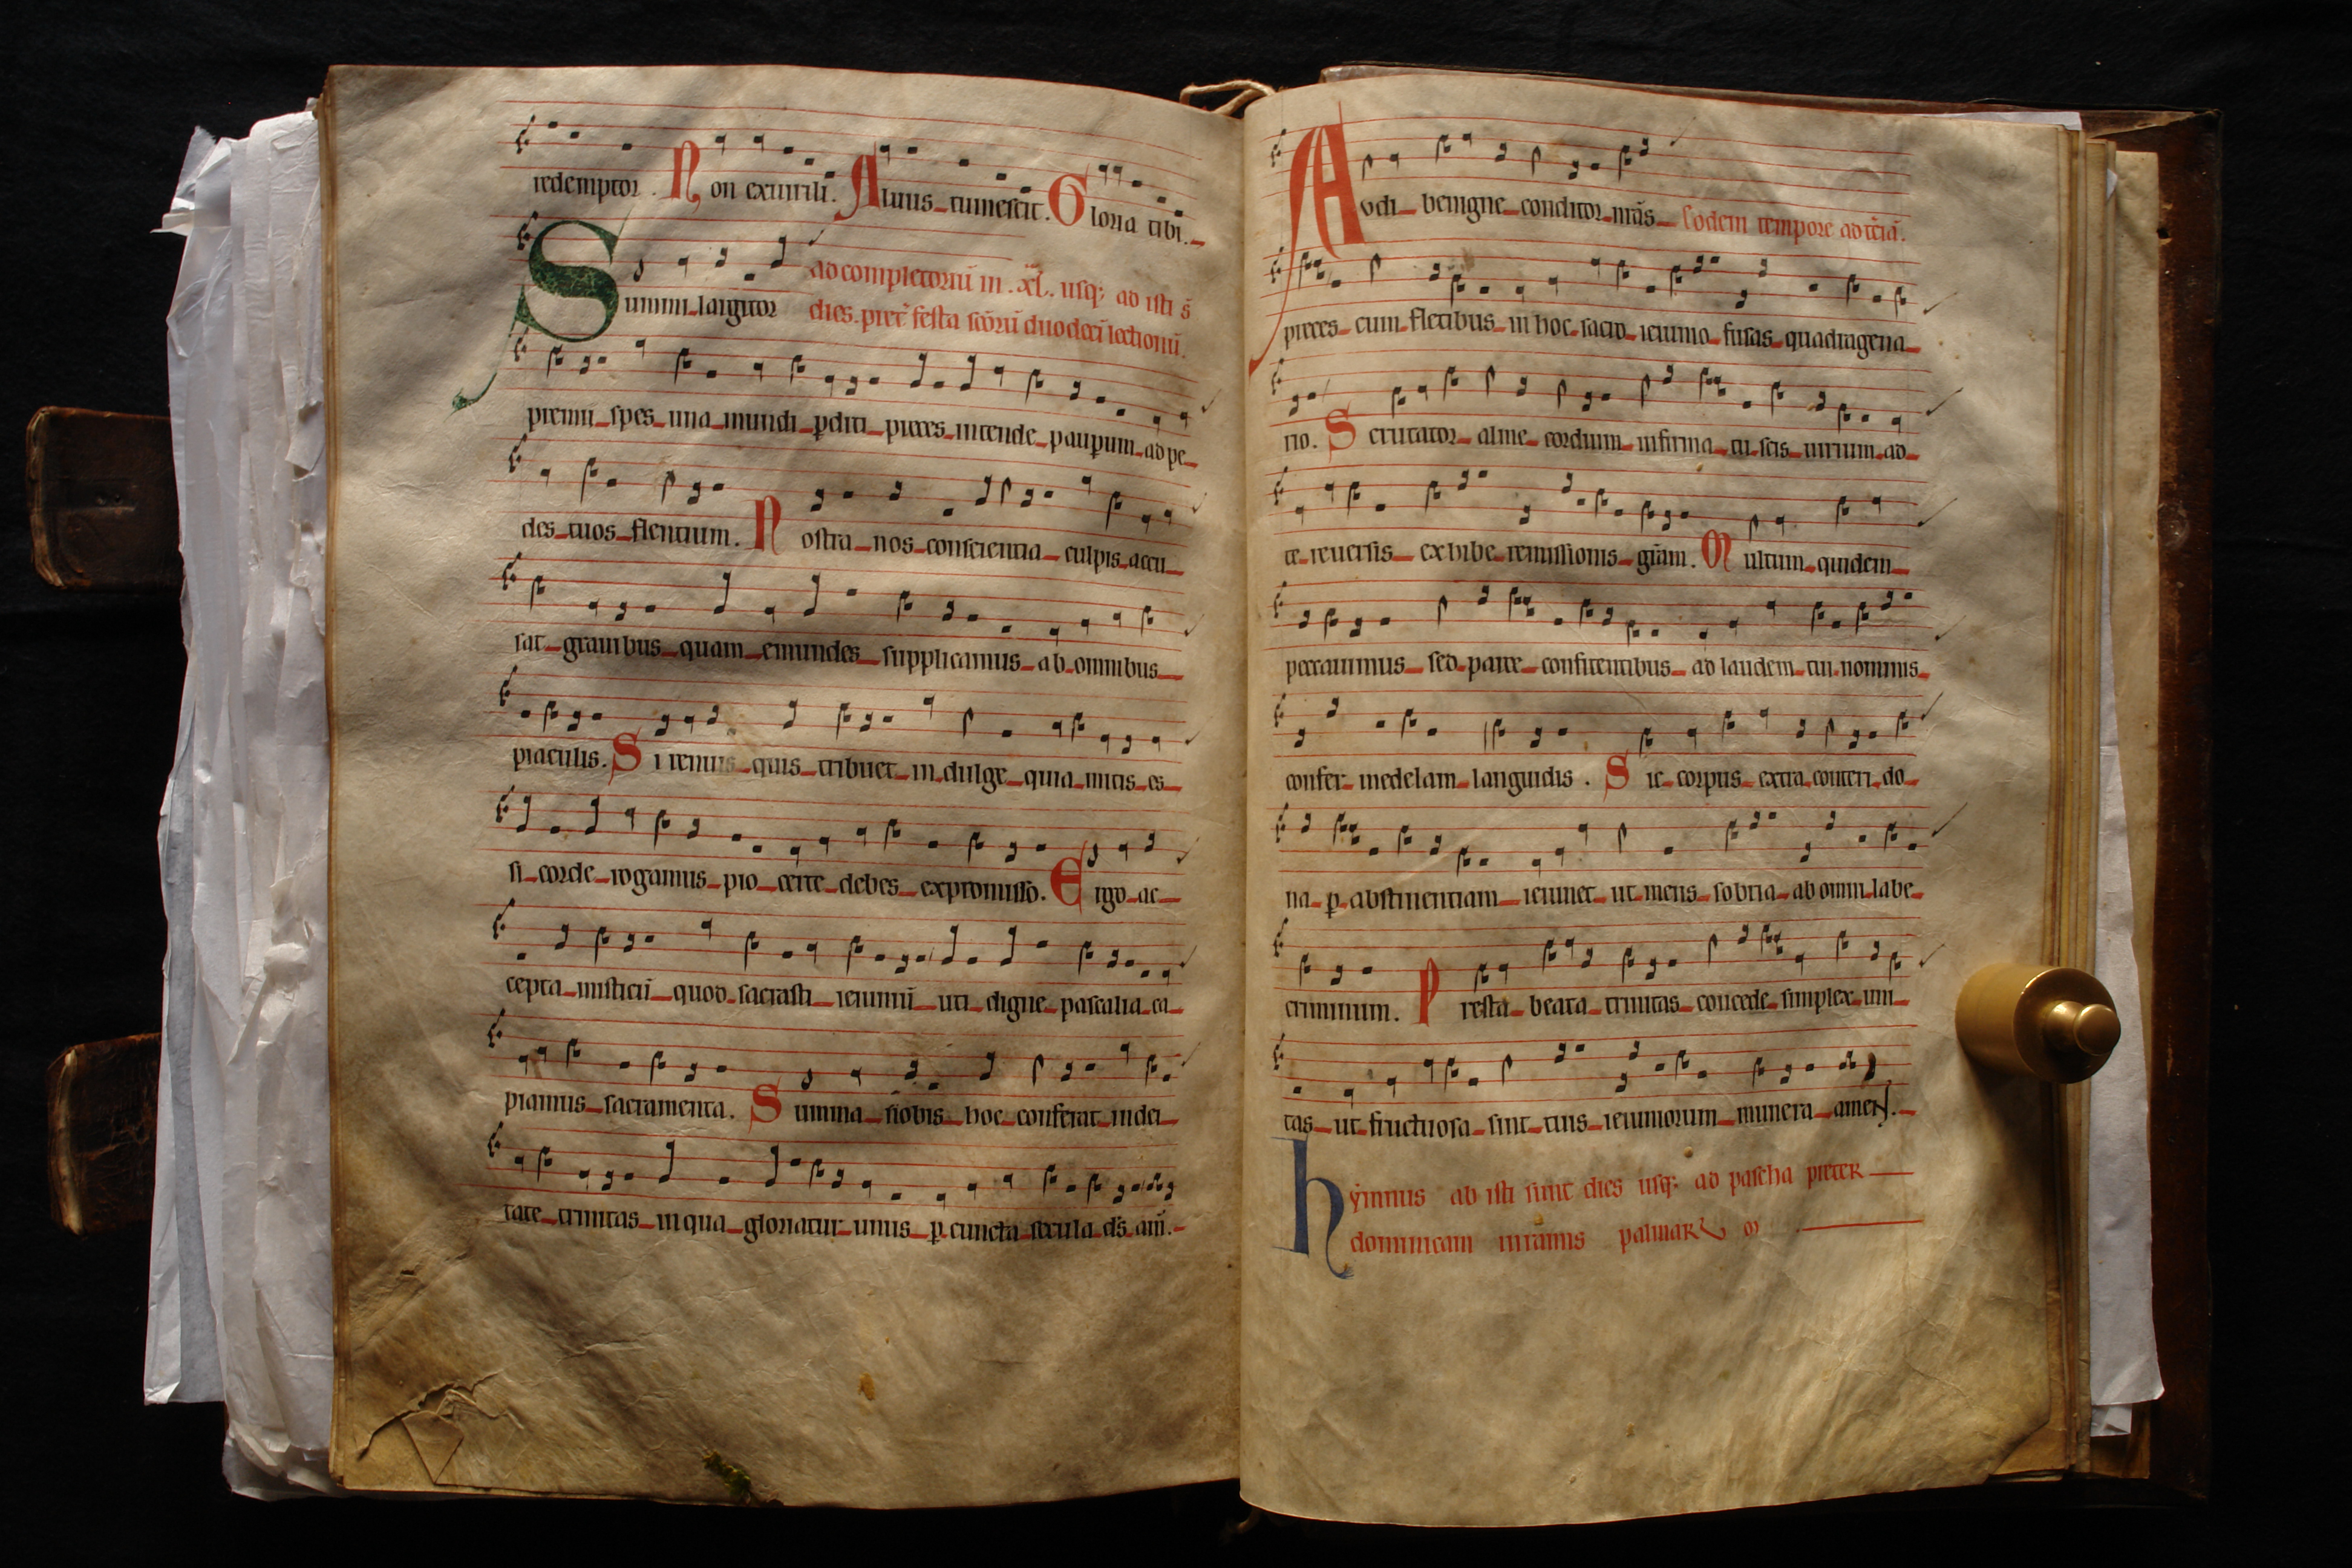 redemptor. Non exuirili. Aluus tumescit. Gloria tibi.
Summi largitor ad completoriū in .xl. usq; ad isti s̄
dies. pret̄ festa scōrū duodecī lectionū.
premii spes una mundi ꝑditi preces intende pauꝑum ad pe
des tuos flentium. Nostra nos conscientia culpis accu
sat grauibus quam emundes supplicamus ab omnibus
piaculis. Si renuis quis tribuet in dulge quia mitis es
si corde rogamus pio certe debes expromisso. Ergo ac
cepta misticū quod sacrasti ieiuniū uti digne pascalia ca
piamus sacramenta. Summa nobis hoc conferat in dei
tate trinitas in qua gloriatur unus ꝑ cuncta secula ds̄ am̄.
Audi benigne conditor nr̄as Eodem tempore ad t̄ciā.
preces cum fletibus in hoc sacro ieiunio fusas quadragena
rio. Scrutator alme cordium infirma tu scis uirium ad
te reuersis exhibe remissionis gr̄am. Multum quidem
peccauimus sed parce confitentibus ad laudem tui nominis
confer medelam languidis. Sic corpus extra conteri do
na ꝑ abstinentiam ieiunet ut mens sobria ab omni labe
criminum. Presta beata trinitas concede simplex uni
tas ut fructuosa sint tuis ieiuniorum munera amen.
hymnus ab isti sunt dies usq; ad pascha preter
dominicam in ramis palmarꝝ